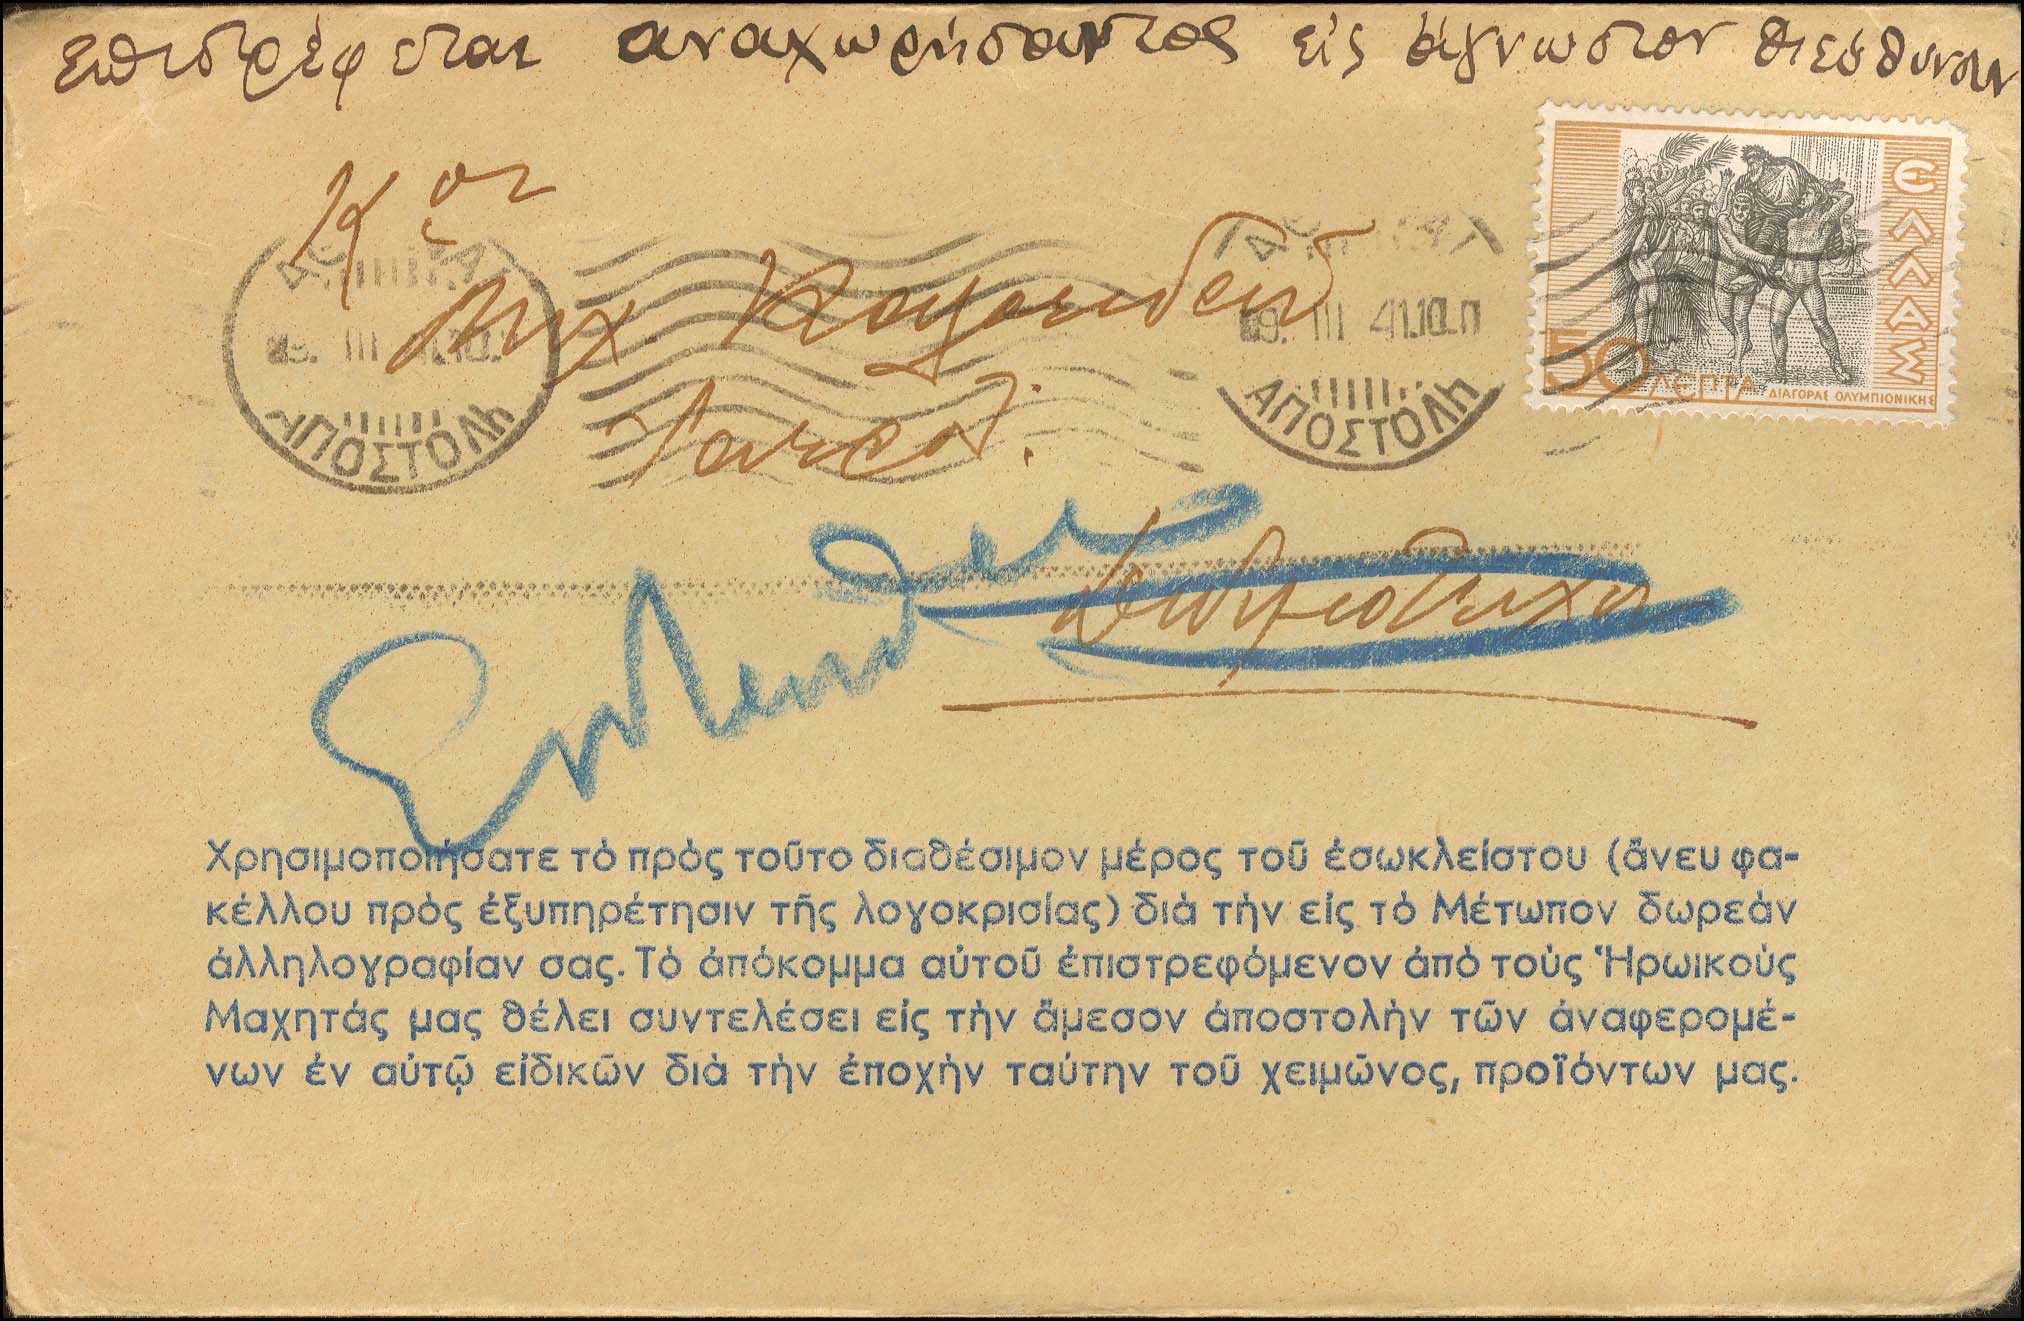 επιστρέφεται αναχωρήσαντος εἰς ἄγνωστον διεύθυνσιν
Κον
Μιχ.
Ἰατρόν.
ΕΛΛΑΣ
50 ΛΕΠΤΑ ΔΙΑΓΟΡΑΣ ΟΛΥΜΠΙΟΝΙΚΗΣ
III 41.10
ΑΠΟΣΤΟΛΗ
09. III 41.10.Π
ΑΠΟΣΤΟΛΗ
Διδυμότειχον
Χρησιμοποιήσατε τὸ πρὸς τοῦτο διαθέσιμον μέρος τοῦ ἐσωκλείστου (ἄνευ φα-
κέλλου πρὸς ἐξυπηρέτησιν τῆς λογοκρισίας) διὰ τὴν εἰς τὸ Μέτωπον δωρεὰν
ἀλληλογραφίαν σας. Τὸ ἀπόκομμα αὐτοῦ ἐπιστρεφόμενον ἀπὸ τοὺς Ἡρωικοὺς
Μαχητάς μας θέλει συντελέσει εἰς τὴν ἄμεσον ἀποστολὴν τῶν ἀναφερομέ-
νων ἐν αὐτῷ εἰδικῶν διὰ τὴν ἐποχὴν ταύτην τοῦ χειμῶνος, προϊόντων μας.